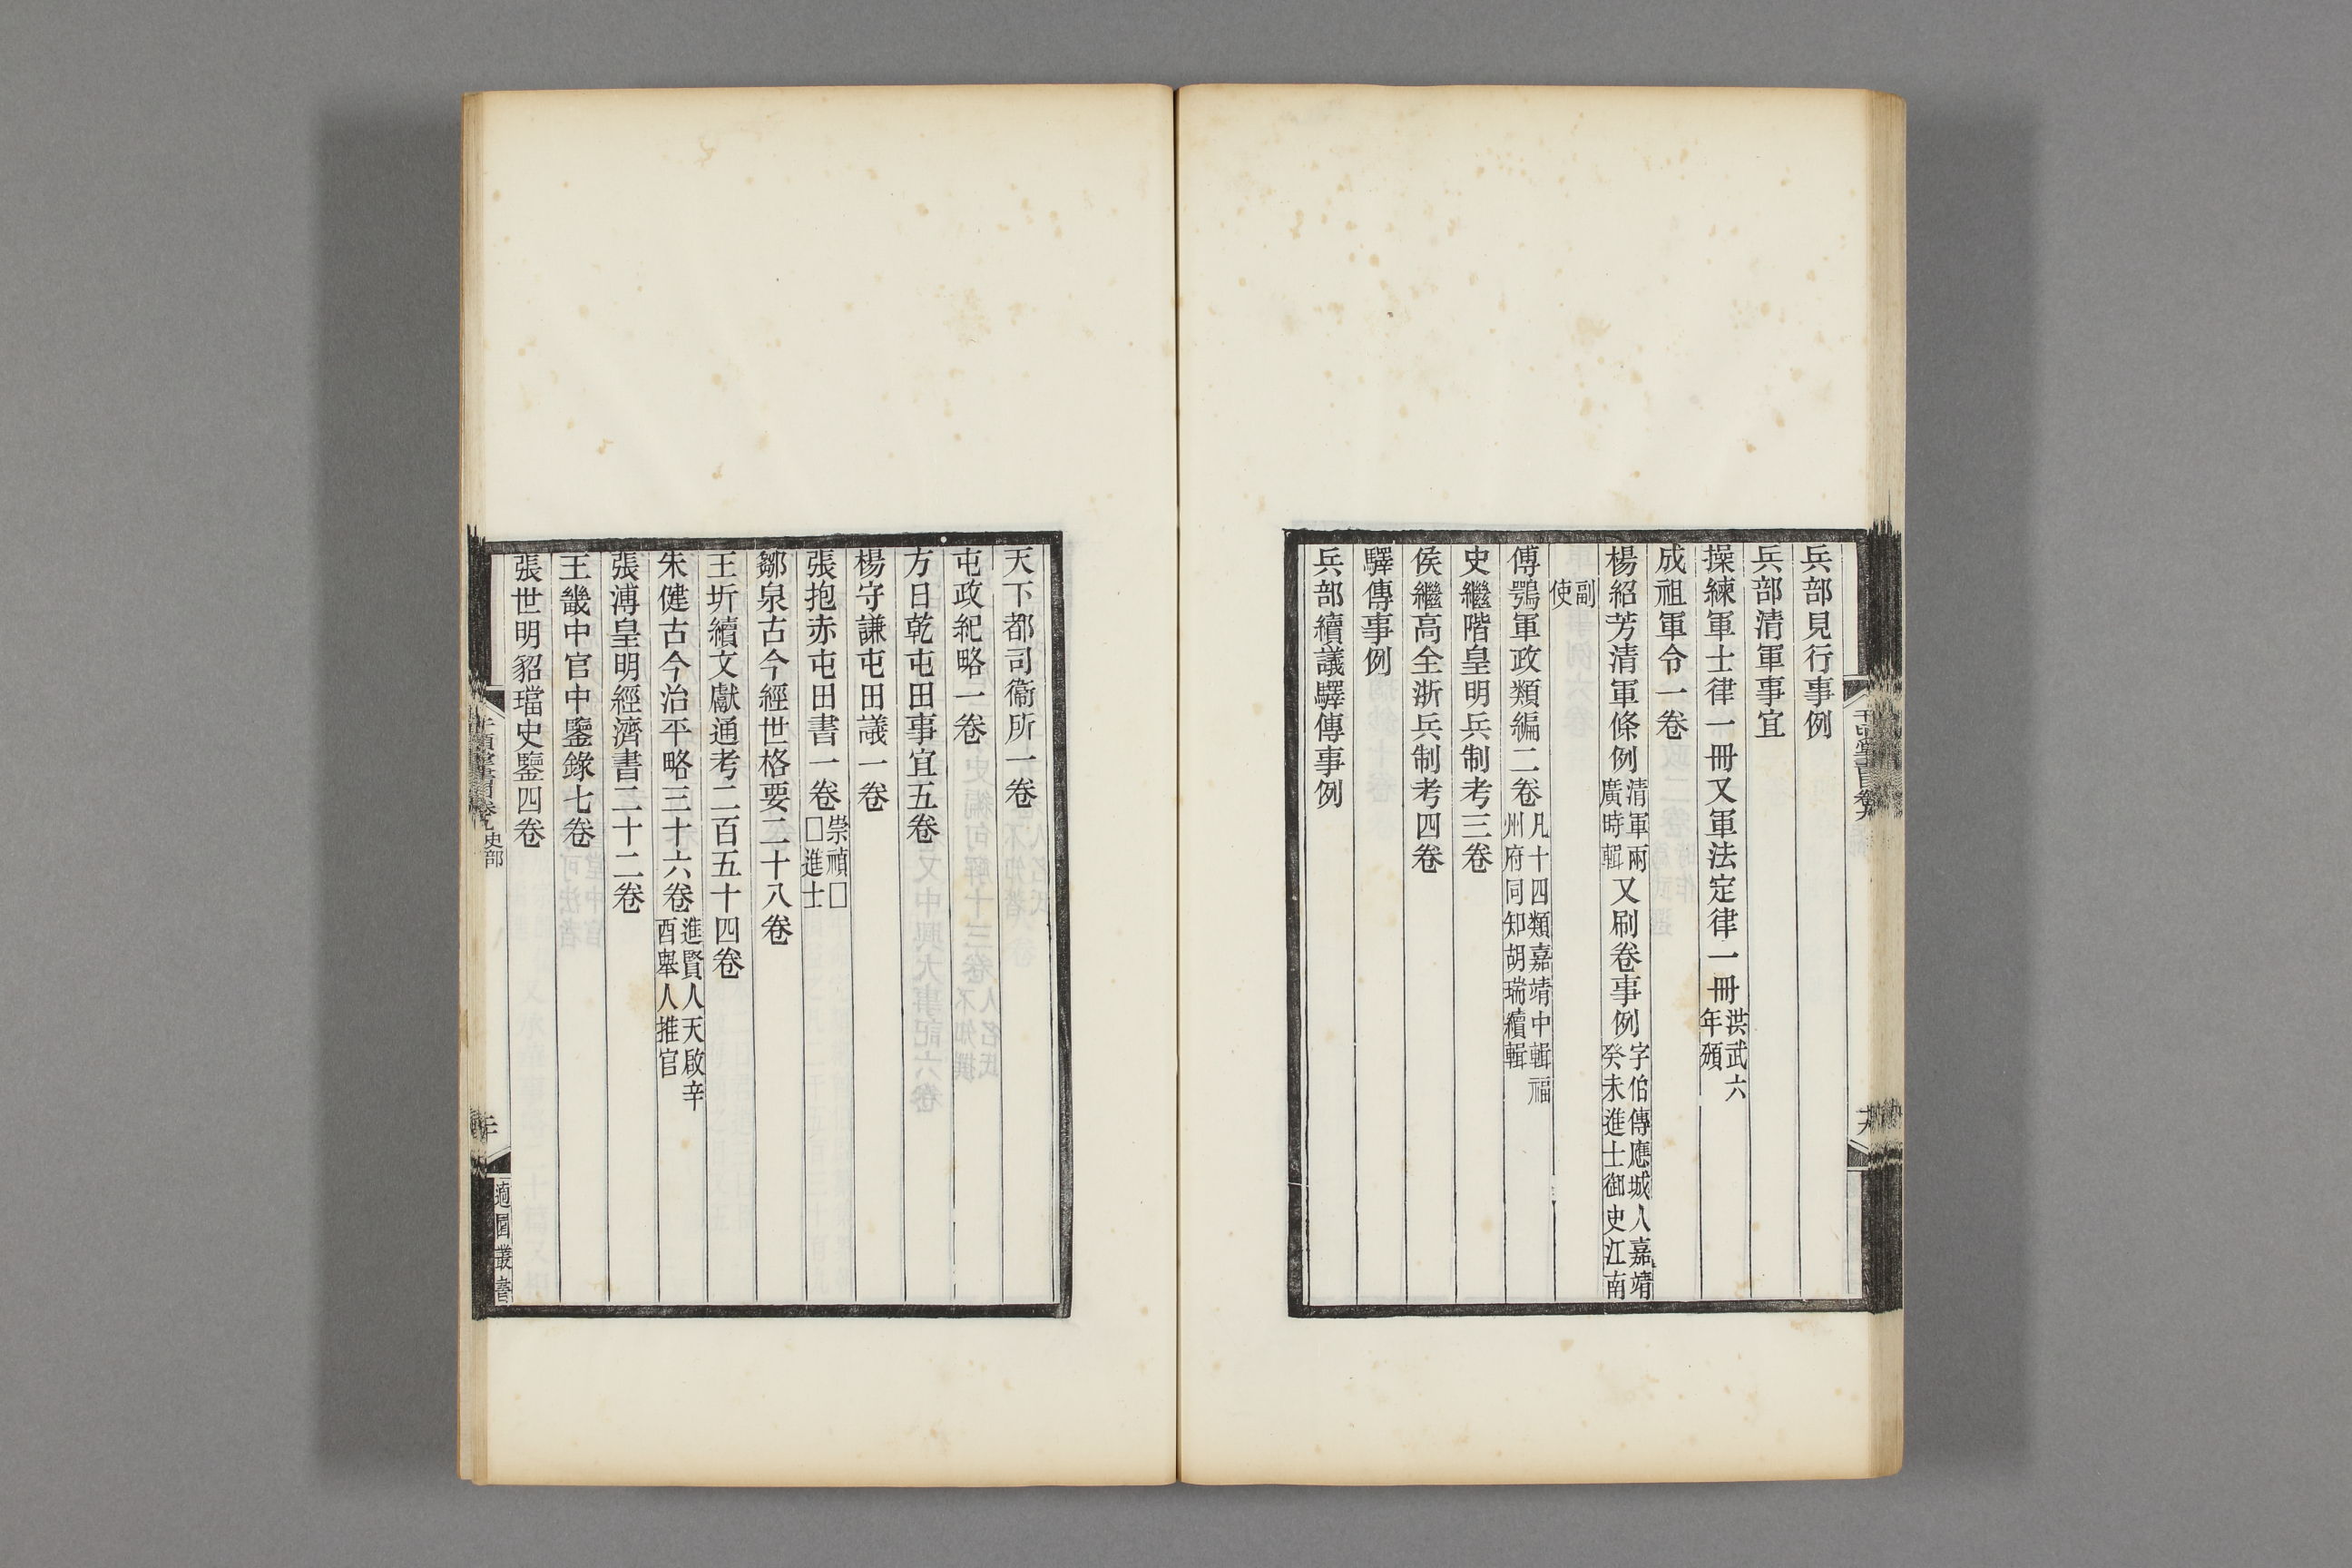 兵部見行事例
兵部清軍事宜
操練軍士律一冊又軍法定律一冊洪武六年頒
成祖軍令一卷
楊紹芳清軍條例清軍兩廣時輯又刷卷事例字伯傳應城人嘉靖癸未進士御史江南
副使
傅鶚軍政類編二卷凡十四類嘉靖中輯福州府同知胡瑞續輯
史繼階皇明兵制考三卷
侯繼高全浙兵制考四卷
驛傳事例
兵部續議驛傳事例
天下都司衞所一卷
屯政紀略一卷
方日乾屯田事宜五卷
楊守謙屯田議一卷
張抱赤屯田書一卷崇禎□□進士
鄒泉古今經世格要二十八卷
王圻續文獻通考二百五十四卷
朱健古今治平略三十六卷進賢人天啟辛酉舉人推官
張溥皇明經濟書二十二卷
王畿中官中鑒錄七卷
張世明貂璫史鑒四卷
千頃堂書目卷九史部
適園叢書